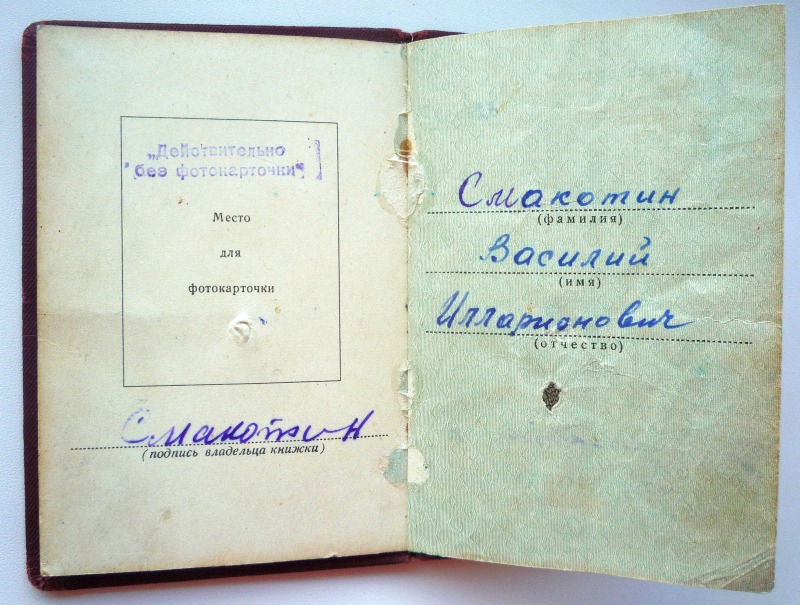 „Действительно
без фотокарточки“
Место
для
фотокарточки
Смакотин
(подпись владельца книжки)
Смакотин
(фамилия)
Василий
(имя)
Илларионович
(отчество)